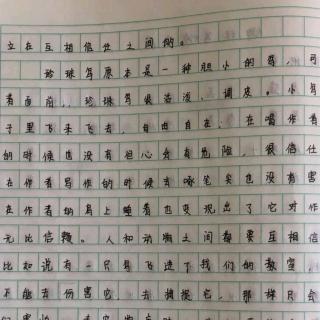 立在互相信任之间的。
珍珠鸟原本是一种胆小的鸟,可
者面前,珍珠鸟很活泼、调皮。小鸟
子里飞来飞去,自由自在,在喝作者
的时候也没有担心会有危险,很信任
在作者写作的时候去啄笔尖也没有害
在作者的肩上睡着也变现出了它对作
无比信赖。人和动物之间都要互相信
比如说有一只鸟飞进了我们的教室
不能去伤害它,去捕捉它,那样只会
们害怕